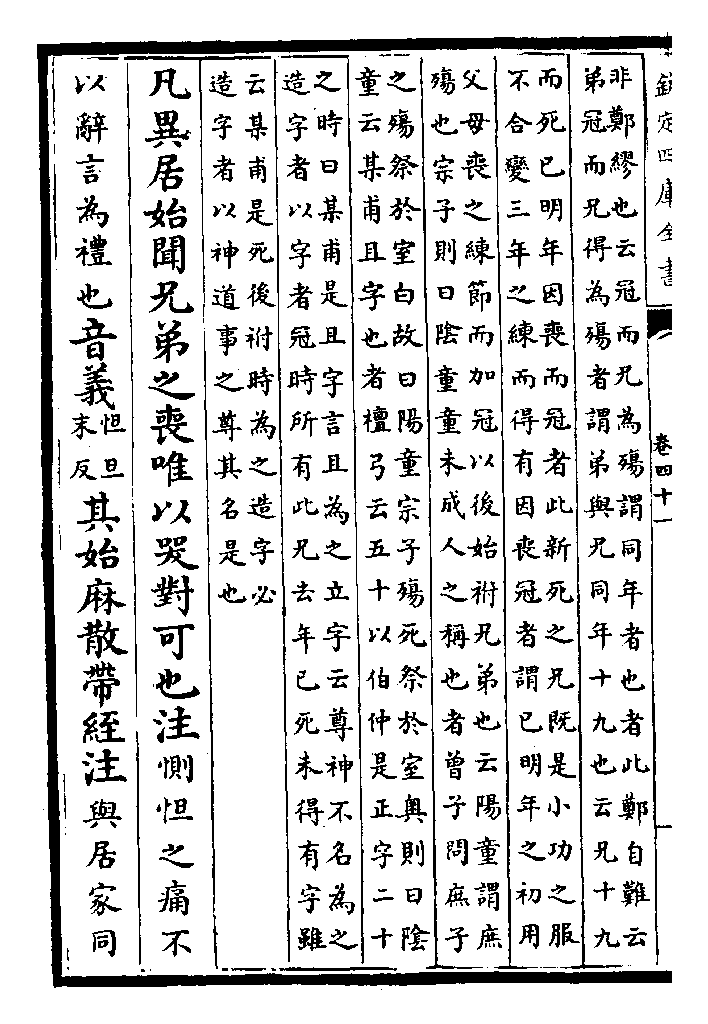 欽定四庫全書
卷四十一
非鄭繆也云冠而兄為殤謂同年者也者此鄭自難云
弟冠而兄得為殤者謂弟與兄同年十九也云兄十九
而死已明年因喪而冠者此新死之兄既是小功之服
不合變三年之練而得有因喪冠者謂已明年之初用
父母喪之練節而加冠以後始祔兄弟也云陽童謂庶
殤也宗子則曰陰童童未成人之稱也者曾子問庶子
之殤祭於室白故曰陽童宗子殤死祭於室奧則曰陰
童云某甫且字也者檀弓云五十以伯仲是正字二十
之時曰某甫是且字言且為之立字云尊神不名為之
造字者以字者冠時所有此兄去年已死未得有字雖
云某甫是死後祔時為之造字必
造字者以神道事之尊其名是也
凡異居始聞兄弟之喪唯以哭對可也注惻怛之痛不
以辭言為禮也音義怛旦末反其始麻散帶絰注與居家同